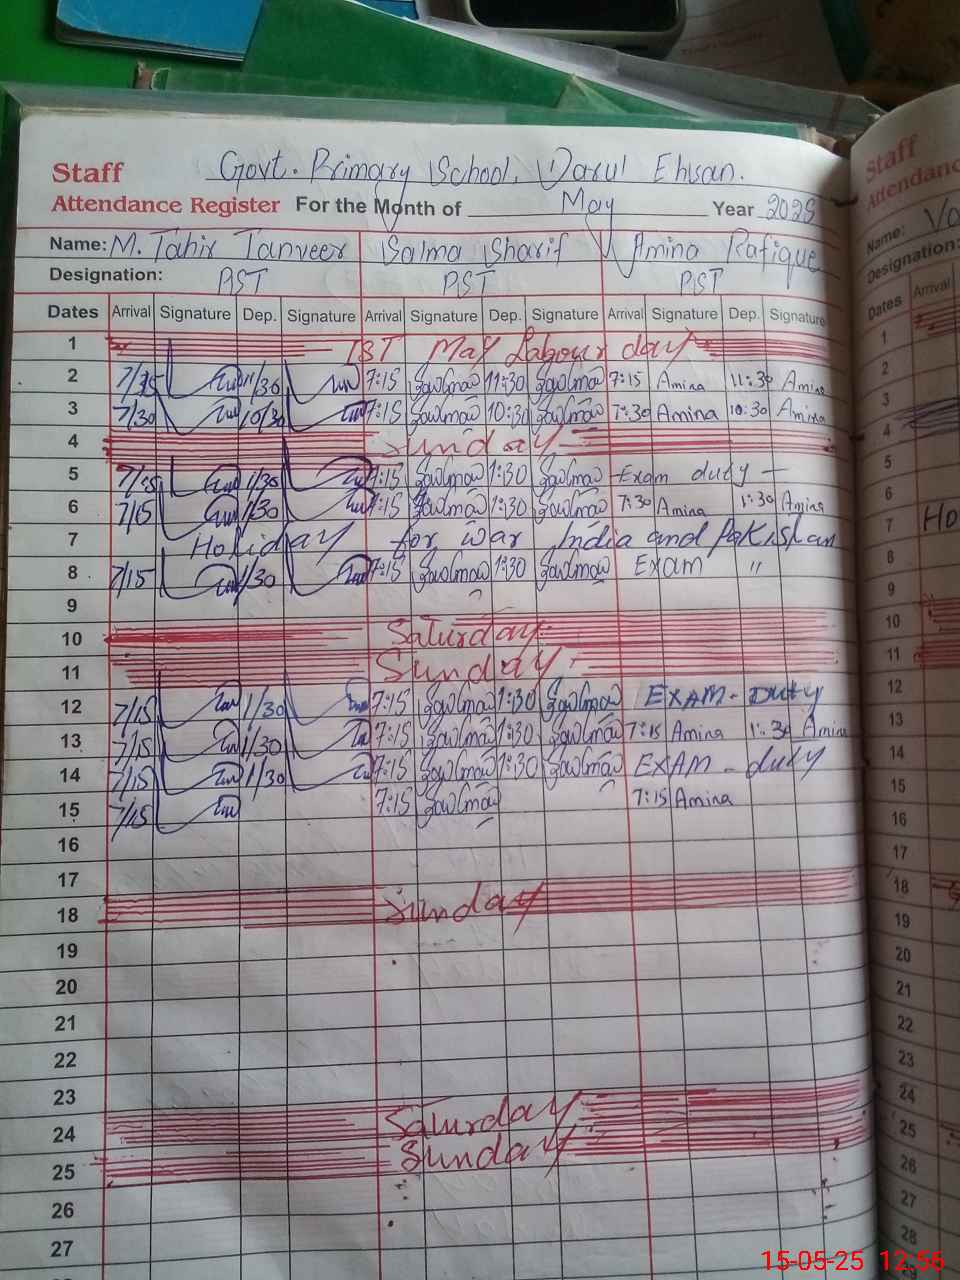 Staff Govt. Primary School, Darul Ehsan.
Attendance Register For the Month of May Year 2025
Name: M. Tahir Tanveer Salma Sharif Amina Rafique
Designation: PST PST PST
Dates Arrival Signature Dep. Signature Arrival Signature Dep. Signature Arrival Signature Dep. Signature
1 1ST May Labour day
2 7/15 11/30 7:15 11:30 7:15 Amina 11:30 Amina
3 7/30 10/30 7:15 10:30 7:30 Amina 10:30 Amina
4 Sunday
5 7/15 1/30 7:15 1:30 Exam duty -
6 7/15 1/30 7:15 1:30 7:30 Amina 1:30 Amina
7 Holiday for war India and Pakistan
8 7/15 1/30 7:15 1:30 Exam "
9
10 Saturday
11 Sunday
12 7/15 1/30 7:15 1:30 EXAM - Duty
13 7/15 1/30 7:15 1:30 7:15 Amina 1:30 Amina
14 7/15 1/30 7:15 1:30 EXAM - duty
15 7/15 7:15 7:15 Amina
16
17
18 Sunday
19
20
21
22
23
24 Saturday
25 Sunday
26
27
Staff
Attendance
Name:
Designation:
Dates Arrival
1
2
3
4
5
6
7 Ho
8
9
10
11
12
13
14
15
16
17
18
19
20
21
22
23
24
25
26
27
28
15-05-25 12:56